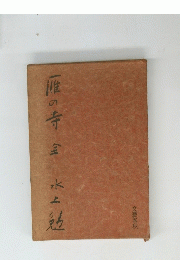 雁の寺 全 水上勉